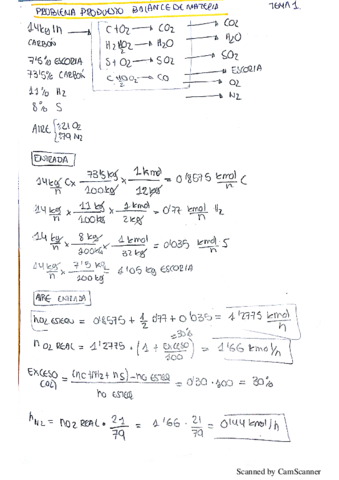 PROBLEMA PRODUCTO BALANCE DE MATERIA TEMA 1
14 kg/n CARBÓN
C + O2 → CO2
H2 + 1/2 O2 → H2O
S + O2 → SO2
C + 1/2 O2 → CO
CO2
H2O
SO2
ESCORIA
O2
N2
7'5% ESCORIA
73'5% CARBÓN
11% H2
8% S
AIRE { 21 O2
79 N2
ENTRADA
14 kg/n C × 73'5 kg/100 kg × 1 kmol/12 kg = 0'8575 kmol/n C
14 kg/n × 11 kg/100 kg × 1 kmol/2 kg = 0'77 kmol/n H2
14 kg/n × 8 kg/100 kg × 1 kmol/32 kg = 0'035 kmol/n S
14 kg/n × 7'5 kg/100 kg = 1'05 kg ESCORIA
AIRE ENTRADA
nO2 ESTEQU = 0'8575 + 1/2 0'77 + 0'035 = 1'2775 kmol/h
nO2 REAL = 1'2775 · (1 + EXCESO/100) = 1'66 kmol/h
30%
EXCESO (O2) = (nC + nH2 + nS) - nO ESTEQ / nO ESTEQ = 0'30 · 100 = 30%
nN2 = nO2 REAL · 21/79 = 1'66 · 21/79 = 0'44 kmol/h
Scanned by CamScanner